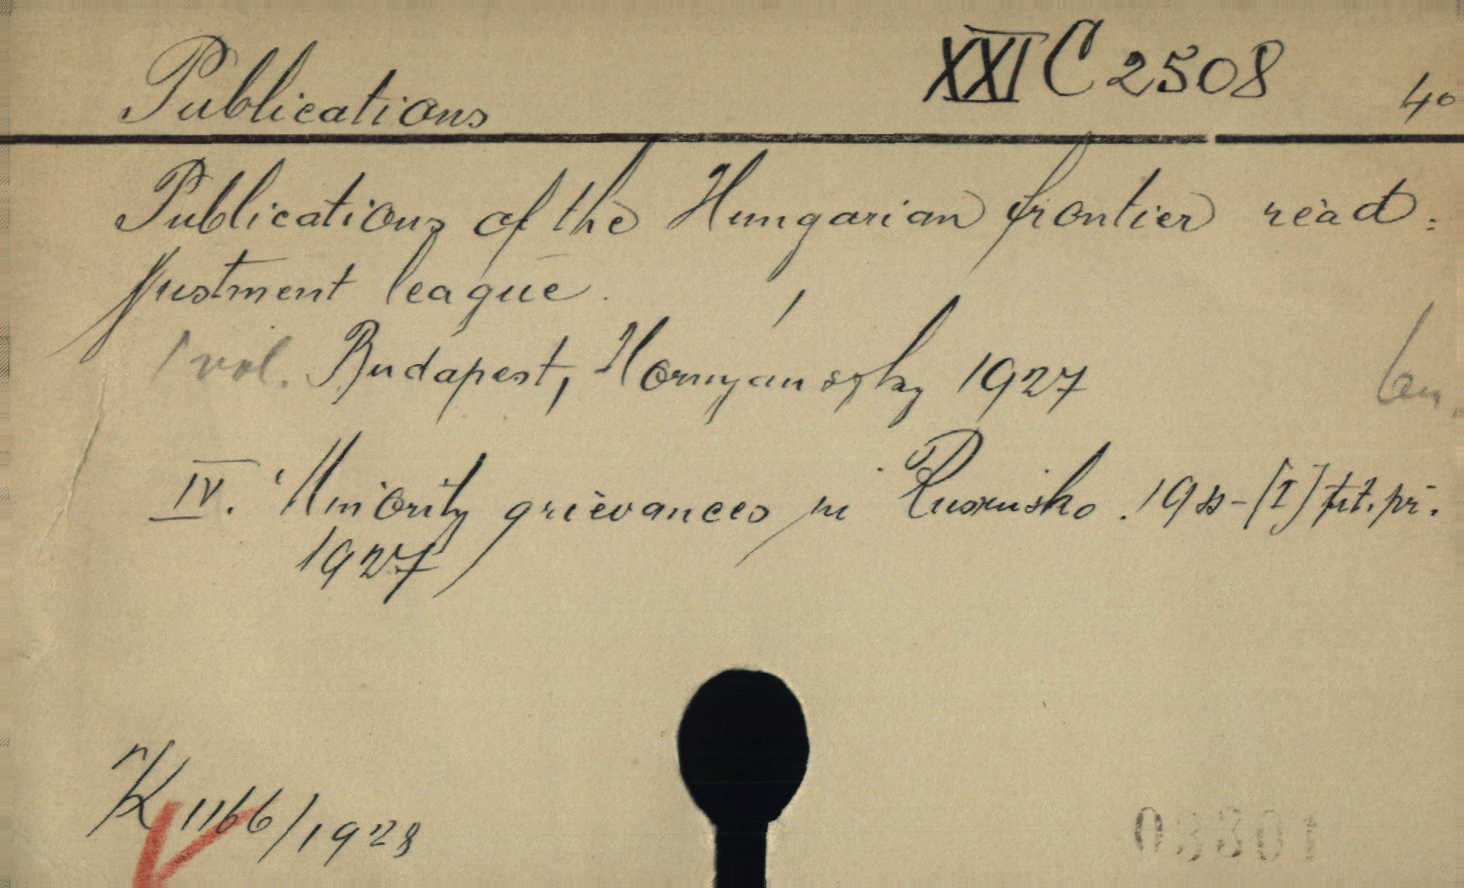 Publications XXI C 2508 4°
Publications of the Hungarian frontier read:
justment league.
1 vol. Budapest, Hornyánszky 1927
IV. Minority grievances in Rusinsko. 19 ss-[I] tit. př.
1927
K 1166/1928
03301